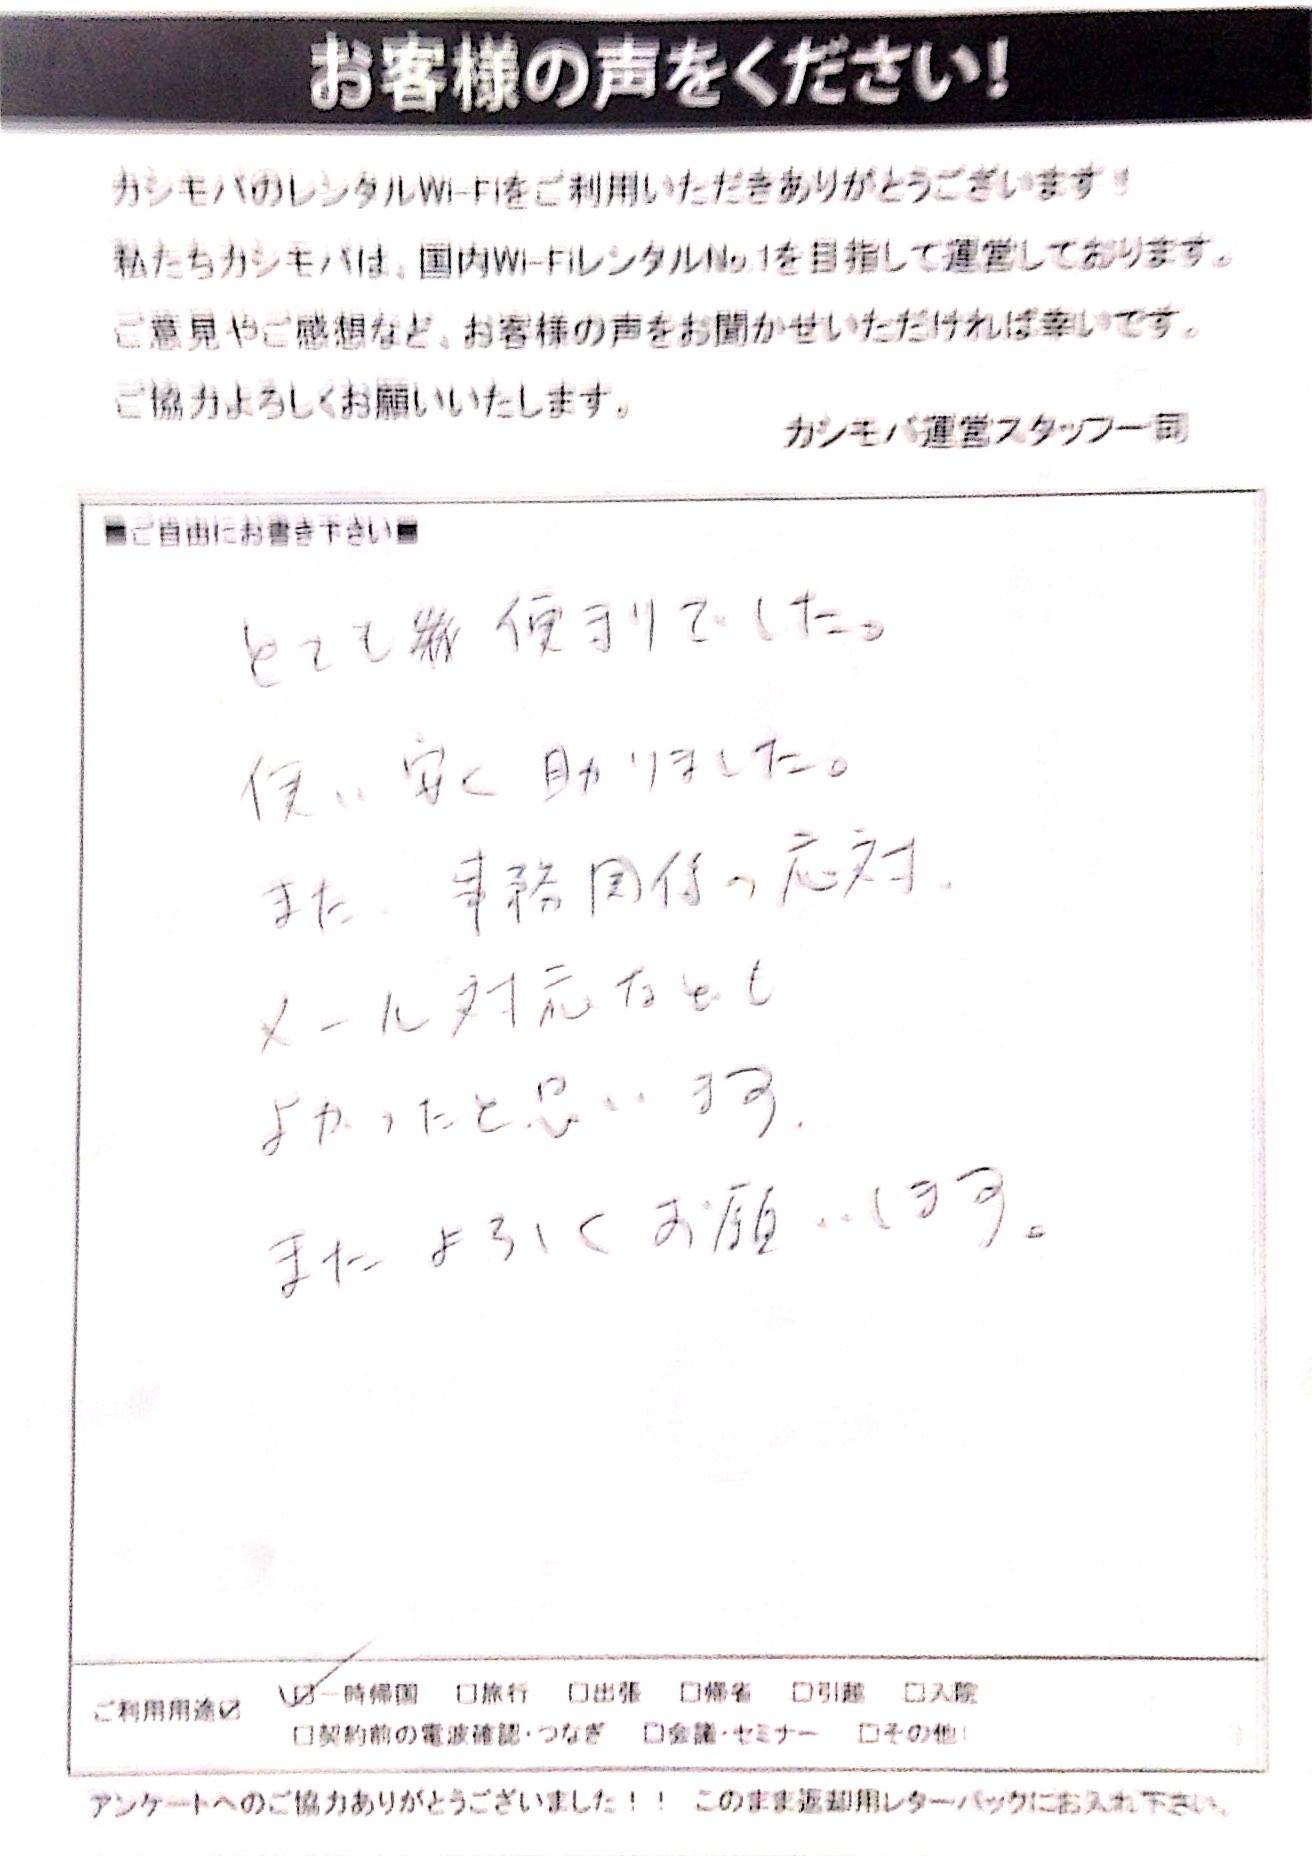 お客様の声をください!
カシモバのレンタルWi-Fiをご利用いただきありがとうございます!
私たちカシモバは、国内Wi-FiレンタルNo.1を目指して運営しております。
ご意見やご感想など、お客様の声をお聞かせいただければ幸いです。
ご協力よろしくお願いいたします。
カシモバ運営スタッフ一同
■ご自由にお書き下さい■
とても 便まりでした。
使い安く助りました。
また、事務関係の応対、
メール対応なども
よかったと思います.
またよろしくお願いします。
ご利用用途☑ ☑一時帰国 □旅行 □出張 □帰省 □引越 □入院
□契約前の電波確認・つなぎ □会議・セミナー □その他( )
アンケートへのご協力ありがとうございました!! このまま返却用レターパックにお入れ下さい。